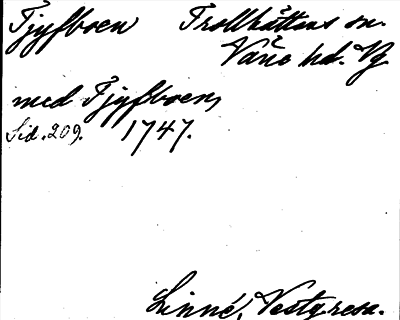 Tjyfboen Trollhättans sn.
Väne hd. Vg.
med Tjyfboen,
Sid. 209. 1747.
Linné, Vestg.resa.